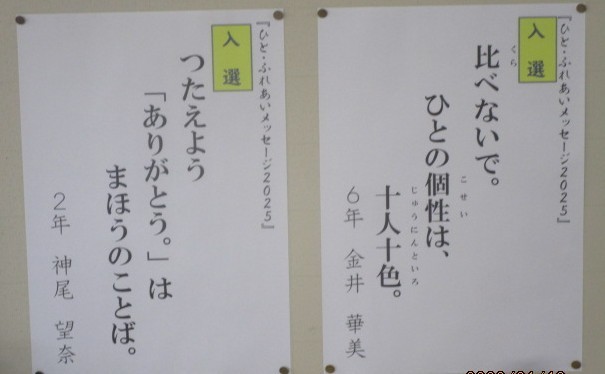 『ひと・ふれあいメッセージ2025』
入選
比べないで。
くら
ひとの個性は、
こせい
十人十色。
じゅうにんといろ
6年 金井 華美
『ひと・ふれあいメッセージ2025』
入選
つたえよう
「ありがとう。」は
まほうのことば。
2年 神尾 望奈